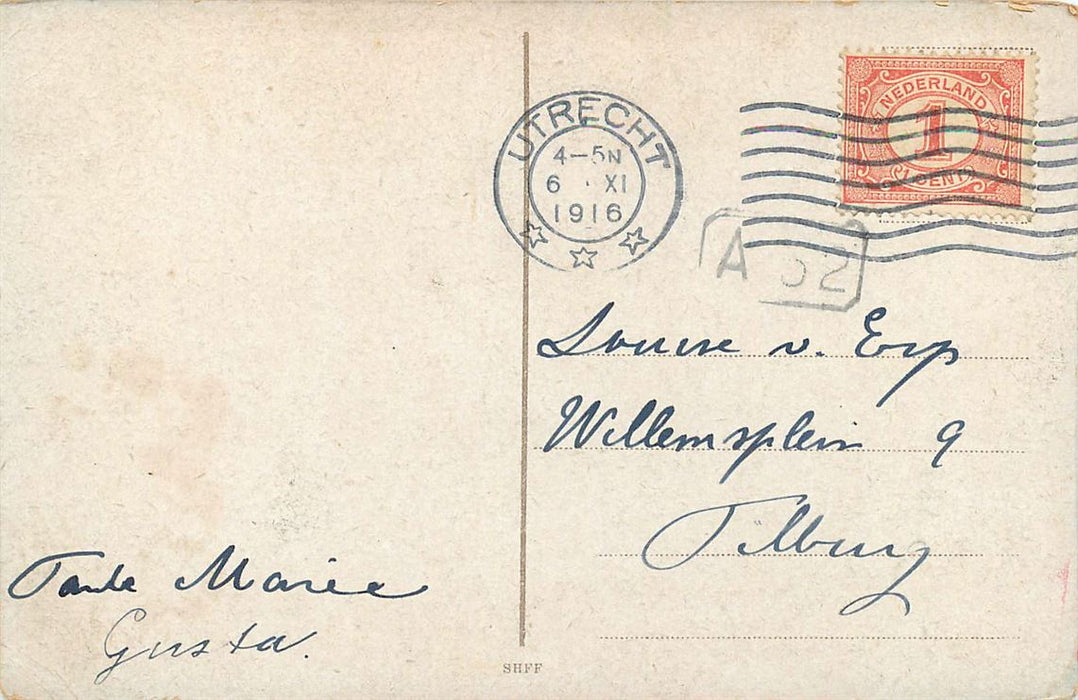 UTRECHT
4-5N
6 XI
1916
NEDERLAND
1
1 CENT
A 32
Louise v. Erp
Willemsplein 9
Tilburg
Tante Mariee
Gusta.
SHFF